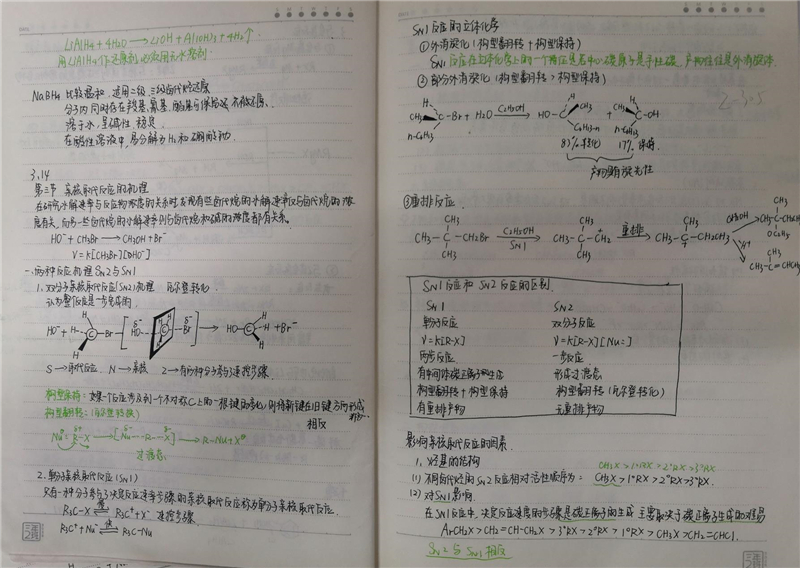 LiAlH4 + 4H2O → LiOH + Al(OH)3 + 4H2↑
用LiAlH4作还原剂,必须用无水溶剂
NaBH4 比较温和,适用二级、三级卤代烃还原
分子内同时存在羧基、氰基、酯基可保留 不被还原。
溶于水,呈碱性 稳定
3.14
第三节 亲核取代反应的机理
在研究水解速率与反应物浓度的关系时发现有些卤代烷的水解速率仅与卤代烷的浓
度有关,而另一些卤代烷的水解速率则与卤代烷和碱的浓度都有关系。
HO⁻ + CH3Br → CH3OH + Br⁻
V = K[CH3Br][OH⁻]
一、两种反应机理 SN2与SN1
1. 双分子亲核取代反应(SN2)机理 瓦尔登转化
认为整个反应是一步完成的
HO⁻ + H H H C—Br → [HO---C---Br] → HO—C H H H + Br⁻
S→取代反应 N→亲核 2→有两种分子参与速控步骤
构型保持:如果一个反应涉及到一个不对称C上的一根键的变化,则将新键在旧键方向形成
构型翻转:(瓦尔登转换) 相反
Nu⁻ R—X → [Nu---R---X] → R—Nu + X⁻
过渡态
2. 单分子亲核取代反应(SN1)
只有一种分子参与了决定反应速率步骤的亲核取代反应称为单分子亲核取代反应.
R3C—X 慢 R3C⁺ + X⁻ 速控步骤
R3C⁺ + Nu⁻ 快 R3C—Nu
SN1反应的立体化学
①外消旋化(构型翻转+构型保持)
SN1反应在立体化学上的一个特征是若中心碳原子是手性碳,产物往往是外消旋体
②部分外消旋化(构型翻转>构型保持)
H CH3 n-C6H13 C—Br + H2O C2H5OH HO—C H CH3 C6H13-n + H CH3 n-C6H13 C—OH
83%转化 17%保持
产物有旋光性
③重排反应
CH3—C(CH3)(CH3)—CH2Br C2H5OH SN1 CH3—C(CH3)(CH3)—CH2⁺ 重排 CH3—C⁺(CH3)—CH2CH3
CH3—C=CHCH3
SN1反应和SN2反应的区别
SN1 SN2
单分子反应 双分子反应
V=K[R-X] V=K[R-X][Nu:]
两步反应 一步反应
有中间体碳正离子生成 形成过渡态
构型翻转+构型保持 构型翻转(瓦尔登转化)
有重排产物 无重排产物
影响亲核取代反应的因素
1. 烃基的结构
CH3X>1°RX>2°RX>3°RX
(1) 不同卤代烃的SN2反应相对活性顺序为: CH3X>1°RX>2°RX>3°RX.
(2) 对SN1影响
在SN1反应中,决定反应速度的步骤是碳正离子的生成 主要取决于碳正离子生成的难易
ArCH2X>CH2=CH-CH2X>3°RX>2°RX>1°RX>CH3X>CH2=CHCl.
SN2与SN1相反